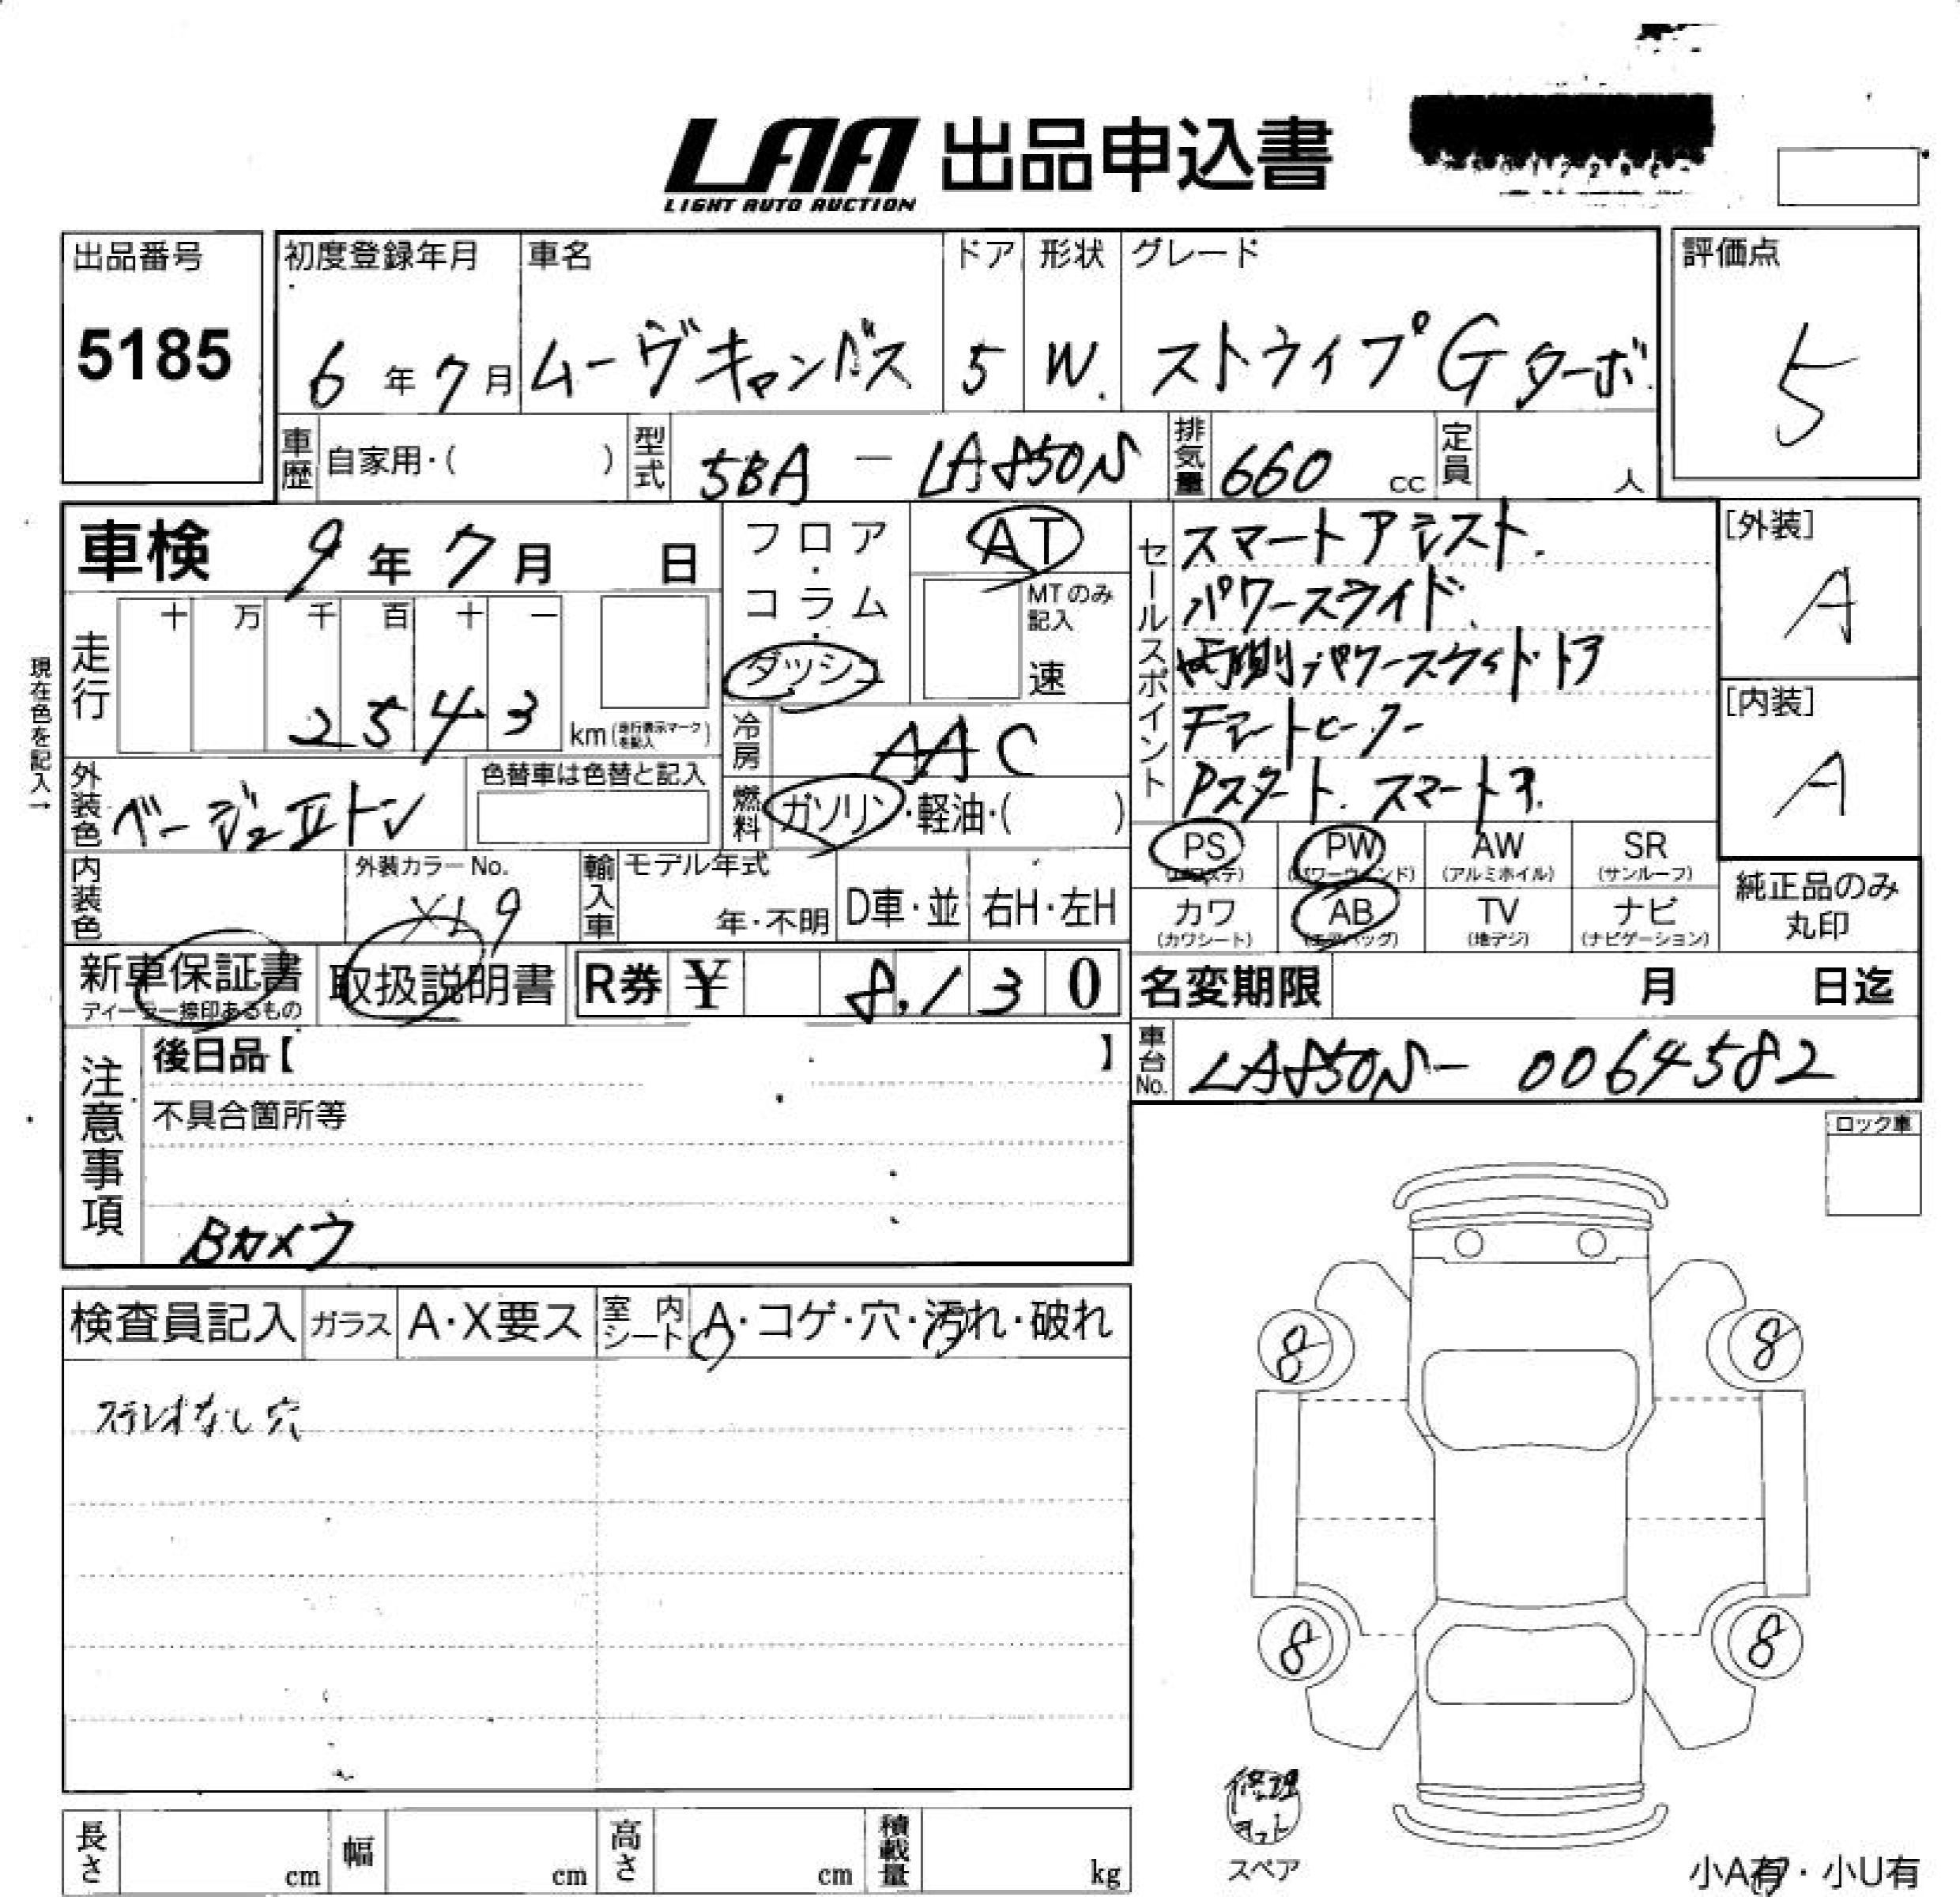 LAA 出品申込書
LIGHT AUTO AUCTION
出品番号
5185
初度登録年月
6年7月
車名
ムーヴキャンバス
ドア
5
形状
W.
グレード
ストライプGターボ
評価点
5
車歴
自家用・( )
型式
5BA - LA850S
排気量
660 cc
定員
人
車検 9年7月 日
フロア・コラム・ダッシュ
AT
MTのみ記入
速
走行
十 万 千 百 十 一
2 5 4 3
km(走行表示マークを記入)
現在色を記入→
冷房
AAC
燃料
ガソリン・軽油・( )
外装色
ベージュIIトン
色替車は色替と記入
内装色
外装カラーNo.
XL9
輸入車
モデル年式
年・不明
D車・並
右H・左H
セールスポイント
スマートアシスト.
パワースライド.
両側パワースライドドア
シートヒーター
Pスタート. スマートキ.
[外装]
A
[内装]
A
PS
(パワステ)
PW
(パワーウィンド)
AW
(アルミホイル)
SR
(サンルーフ)
カワ
(カワシート)
AB
(エアバッグ)
TV
(地デジ)
ナビ
(ナビゲーション)
純正品のみ
丸印
新車保証書
ディーラー捺印あるもの
取扱説明書
R券 ¥ 8,130
名変期限 月 日迄
車台No.
LA850S- 0064582
注意事項
後日品【 】
不具合箇所等
Bカメラ
ロック車
検査員記入
ガラス
A・X要ス
室内シート
A・コゲ・穴・汚れ・破れ
ステレオなし穴
8
8
8
8
修理
キット
スペア
長さ cm
幅 cm
高さ cm
積載量 kg
小A有・小U有